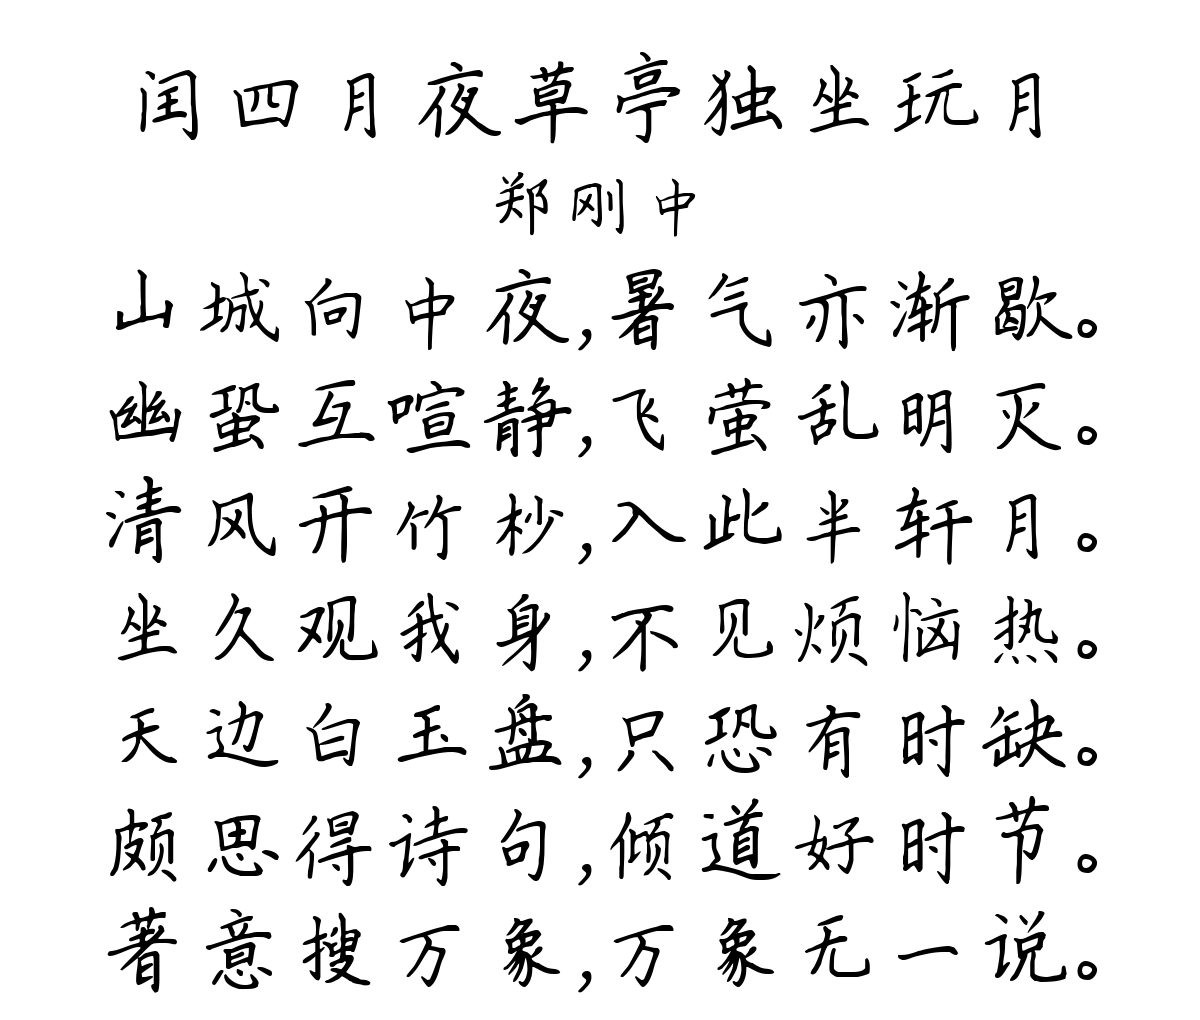 闰四月夜草亭独坐玩月
郑刚中
山城向中夜,暑气亦渐歇。
幽蛩互喧静,飞萤乱明灭。
清风开竹杪,入此半轩月。
坐久观我身,不见烦恼热。
天边白玉盘,只恐有时缺。
颇思得诗句,倾道好时节。
著意搜万象,万象无一说。